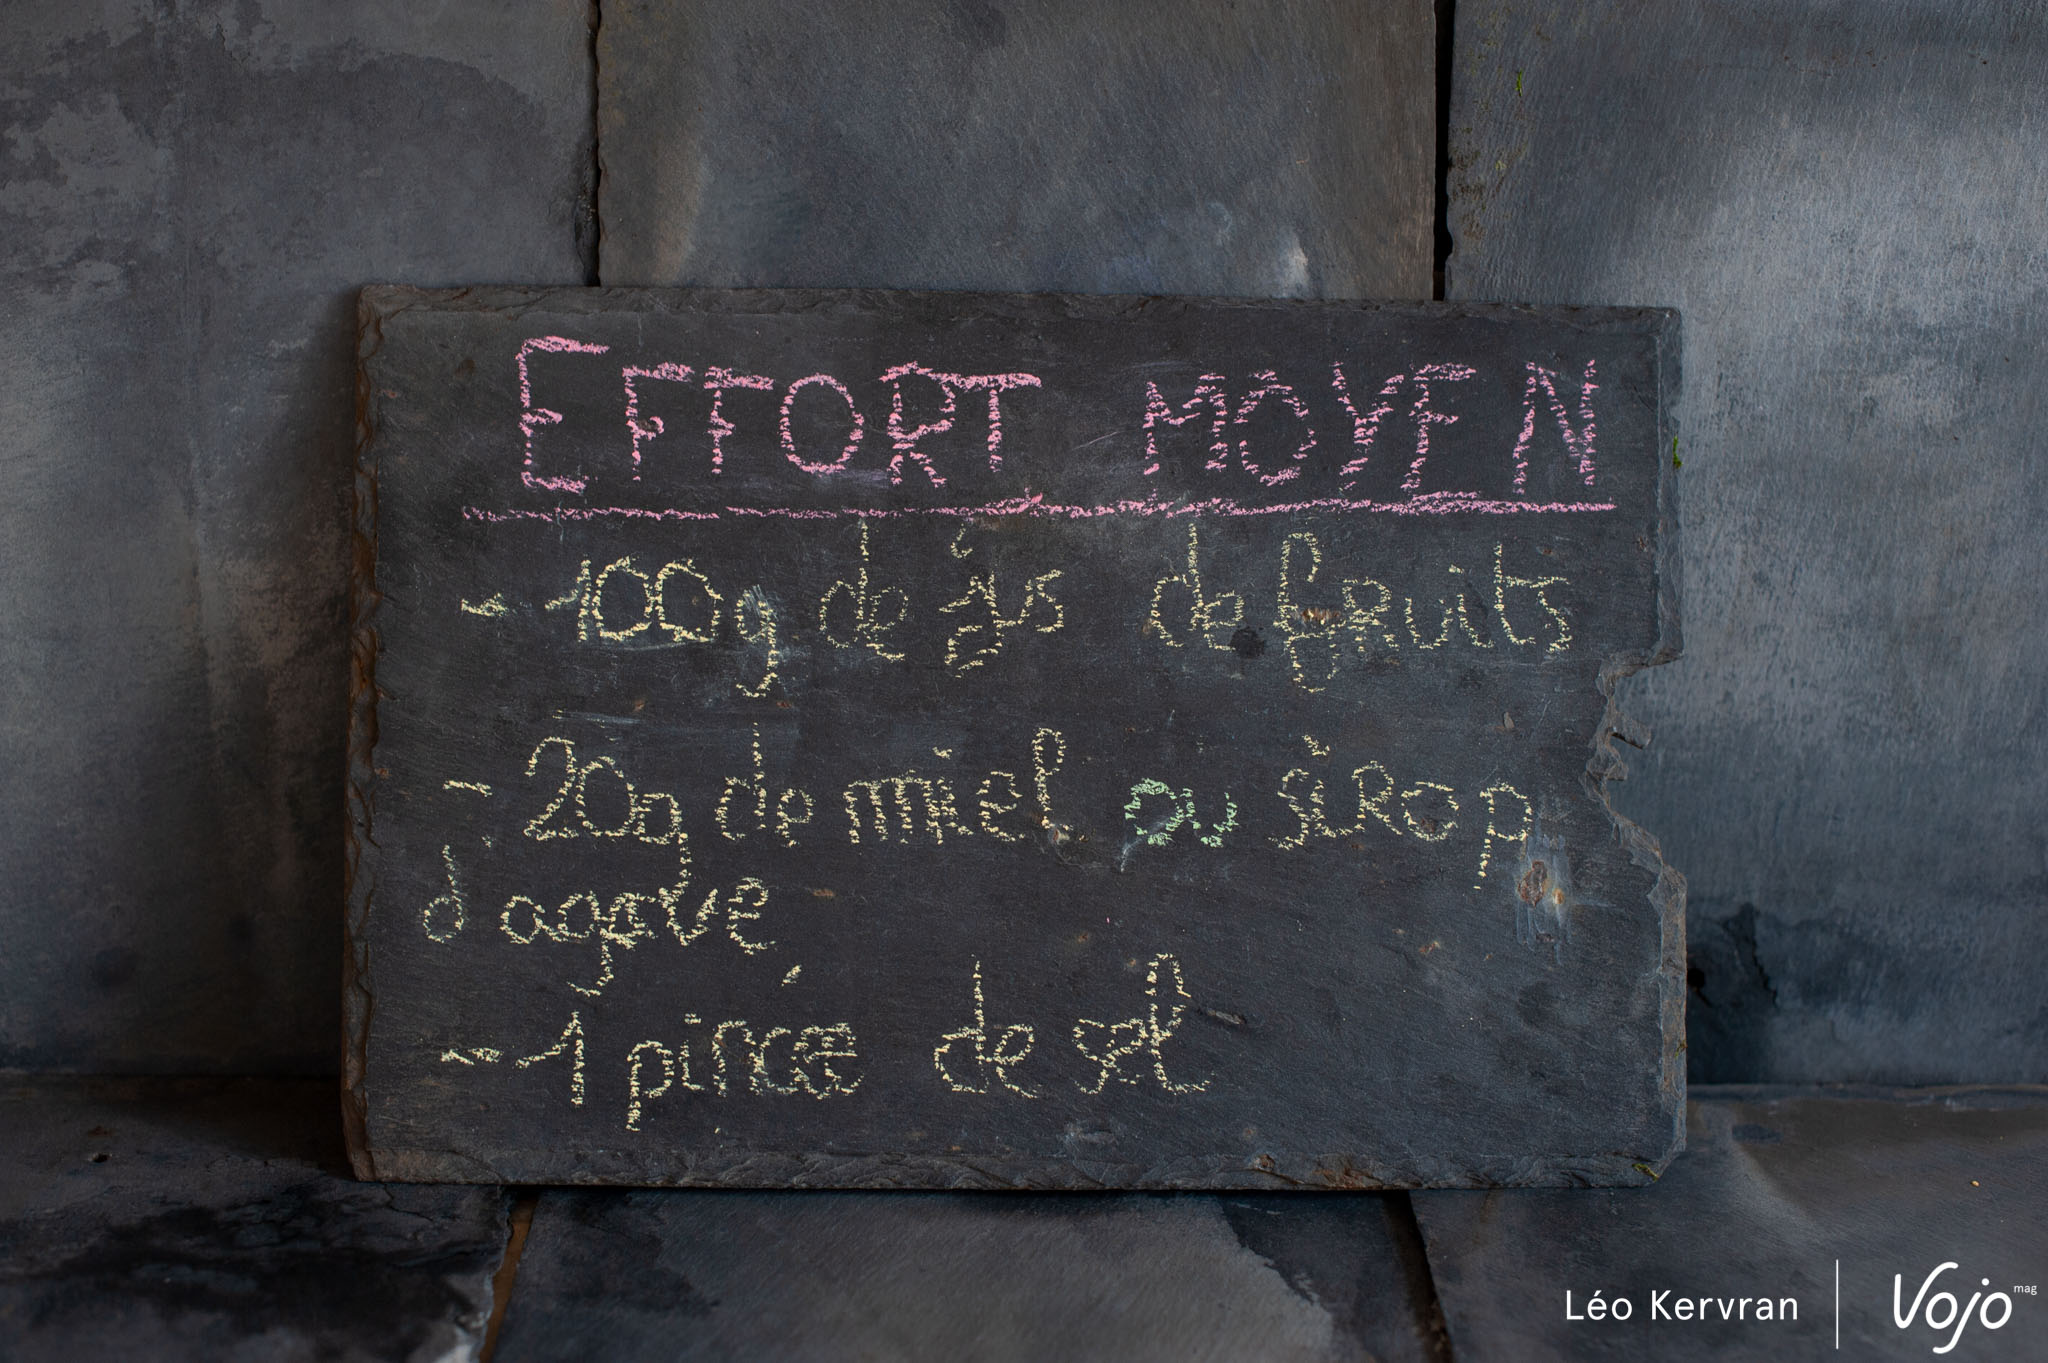 EFFORT MOYEN
- 100g de jus de fruits
- 20g de miel ou sirop
d'agave
- 1 pincée de sel
Léo Kervran | Vojo mag